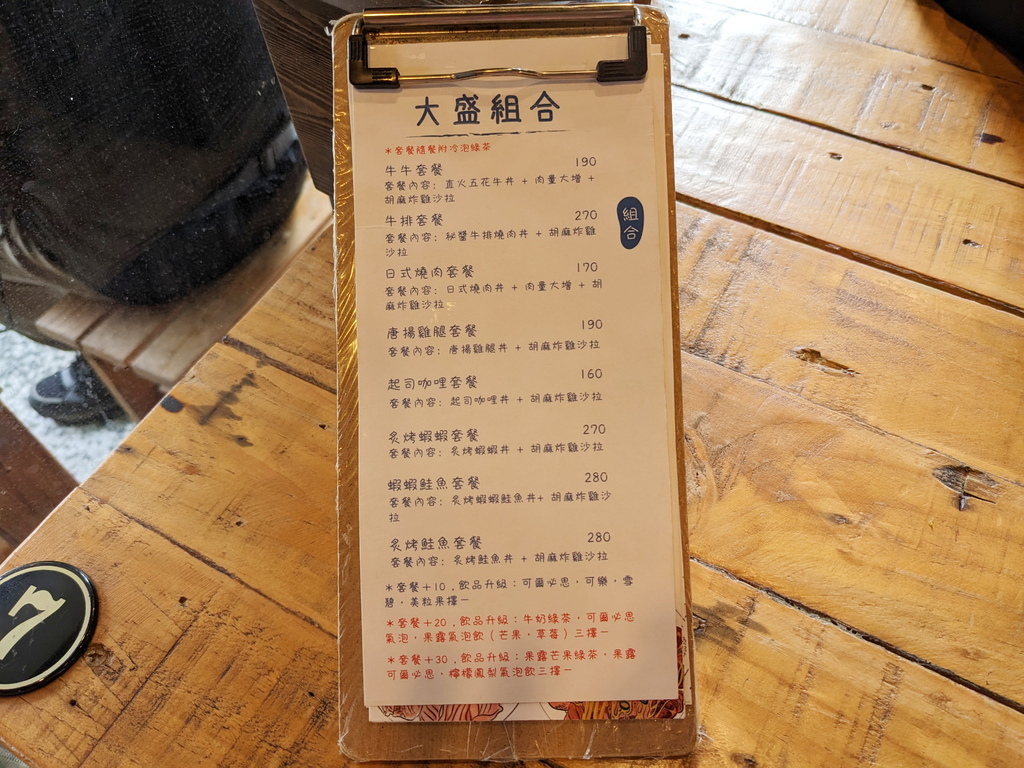 大盛組合
*套餐隨餐附冷泡綠茶
牛牛套餐 190
套餐內容: 直火五花牛丼 + 肉量大增 +
胡麻炸雞沙拉
牛排套餐 270
套餐內容: 秘醬牛排燒肉丼 + 胡麻炸雞
沙拉
組合
日式燒肉套餐 170
套餐內容: 日式燒肉丼 + 肉量大增 + 胡
麻炸雞沙拉
唐揚雞腿套餐 190
套餐內容: 唐揚雞腿丼 + 胡麻炸雞沙拉
起司咖哩套餐 160
套餐內容: 起司咖哩丼 + 胡麻炸雞沙拉
炙烤蝦蝦套餐 270
套餐內容: 炙烤蝦蝦丼 + 胡麻炸雞沙拉
蝦蝦鮭魚套餐 280
套餐內容: 炙烤蝦蝦鮭魚丼+ 胡麻炸雞沙
拉
炙烤鮭魚套餐 280
套餐內容: 炙烤鮭魚丼 + 胡麻炸雞沙拉
*套餐+10,飲品升級:可爾必思·可樂·雪
碧·美粒果擇一
*套餐+20,飲品升級:牛奶綠茶·可爾必思
氣泡·果露氣泡飲(芒果·草莓)三擇一
*套餐+30,飲品升級:果露芒果綠茶·果露
可爾必思·檸檬鳳梨氣泡飲三擇一
7